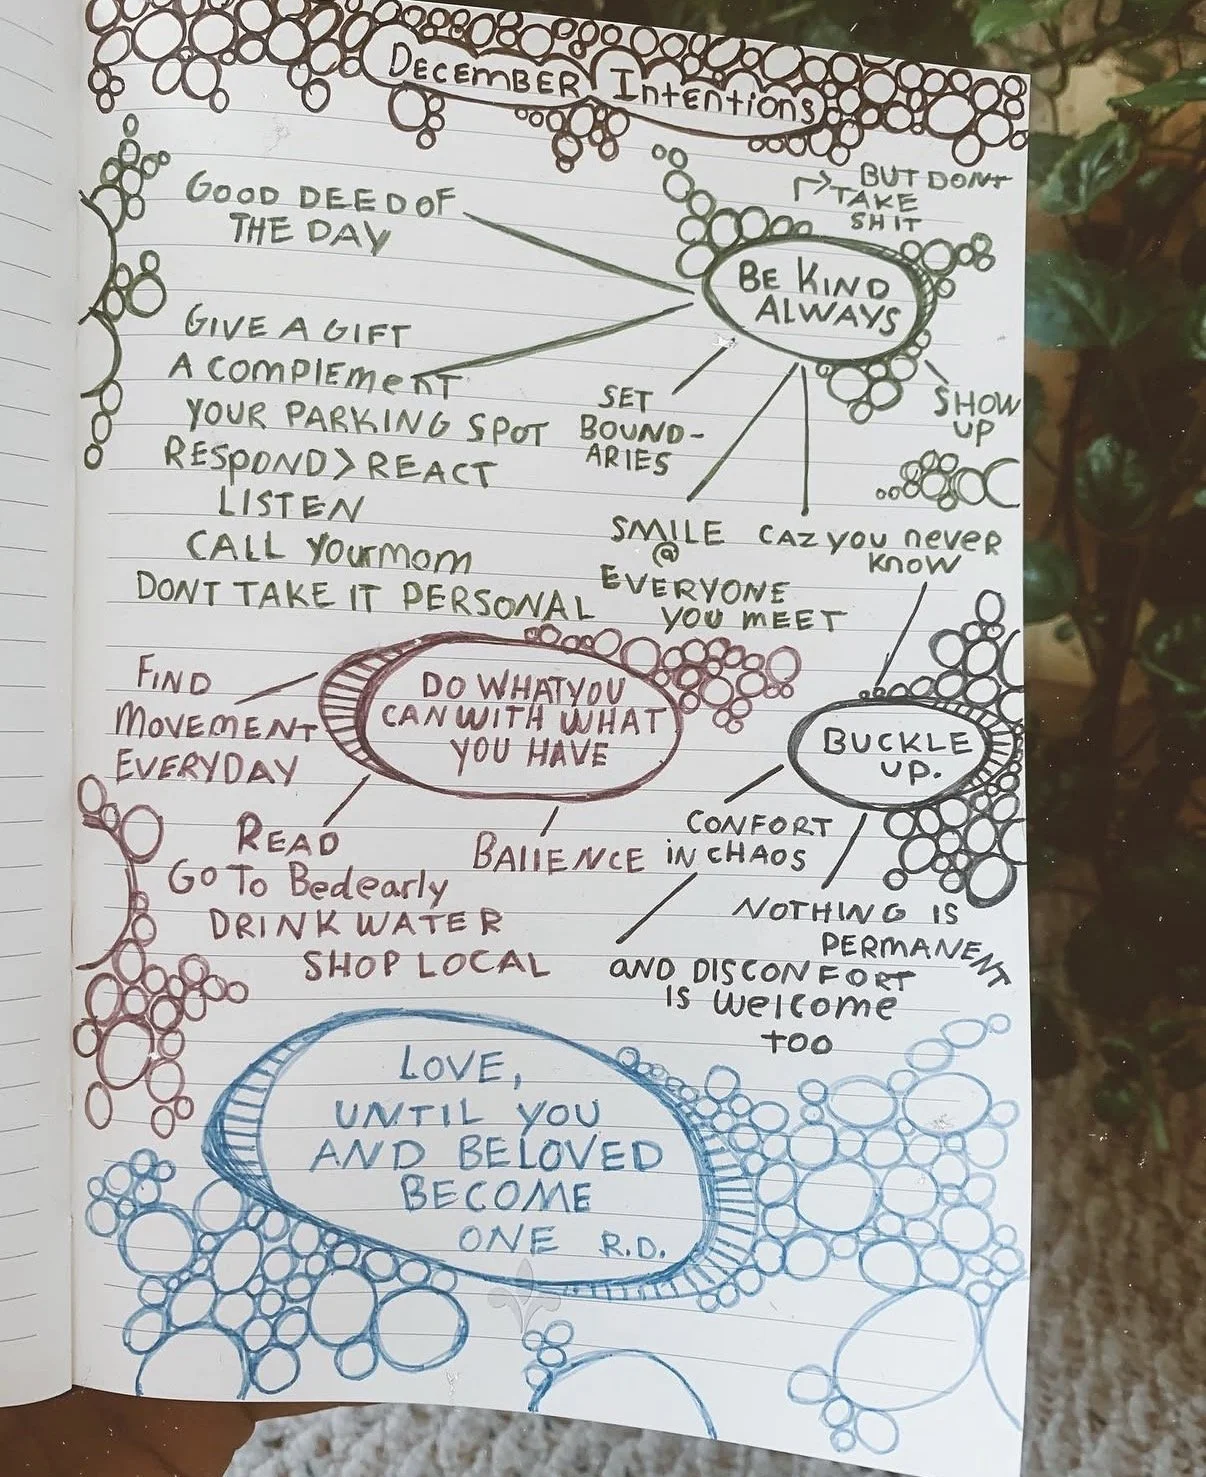 December Intentions
GOOD DEED OF
THE DAY
BUT DONT
TAKE
SHIT
BE KIND
ALWAYS
GIVE A GIFT
A COMPLEMENT
YOUR PARKING SPOT
RESPOND > REACT
LISTEN
CALL YOUR MOM
DONT TAKE IT PERSONAL
SET
BOUND-
ARIES
SHOW
UP
SMILE
@
EVERYONE
YOU MEET
CAZ YOU NEVER
KNOW
BUCKLE
UP.
CONFORT
IN CHAOS
AND DISCONFORT
IS WELCOME
TOO
NOTHING IS
PERMANENT
DO WHAT YOU
CAN WITH WHAT
YOU HAVE
FIND
MOVEMENT
EVERYDAY
READ
GO TO Bed early
DRINK WATER
SHOP LOCAL
BAllENCE
LOVE,
UNTIL YOU
AND BELOVED
BECOME
ONE R.D.